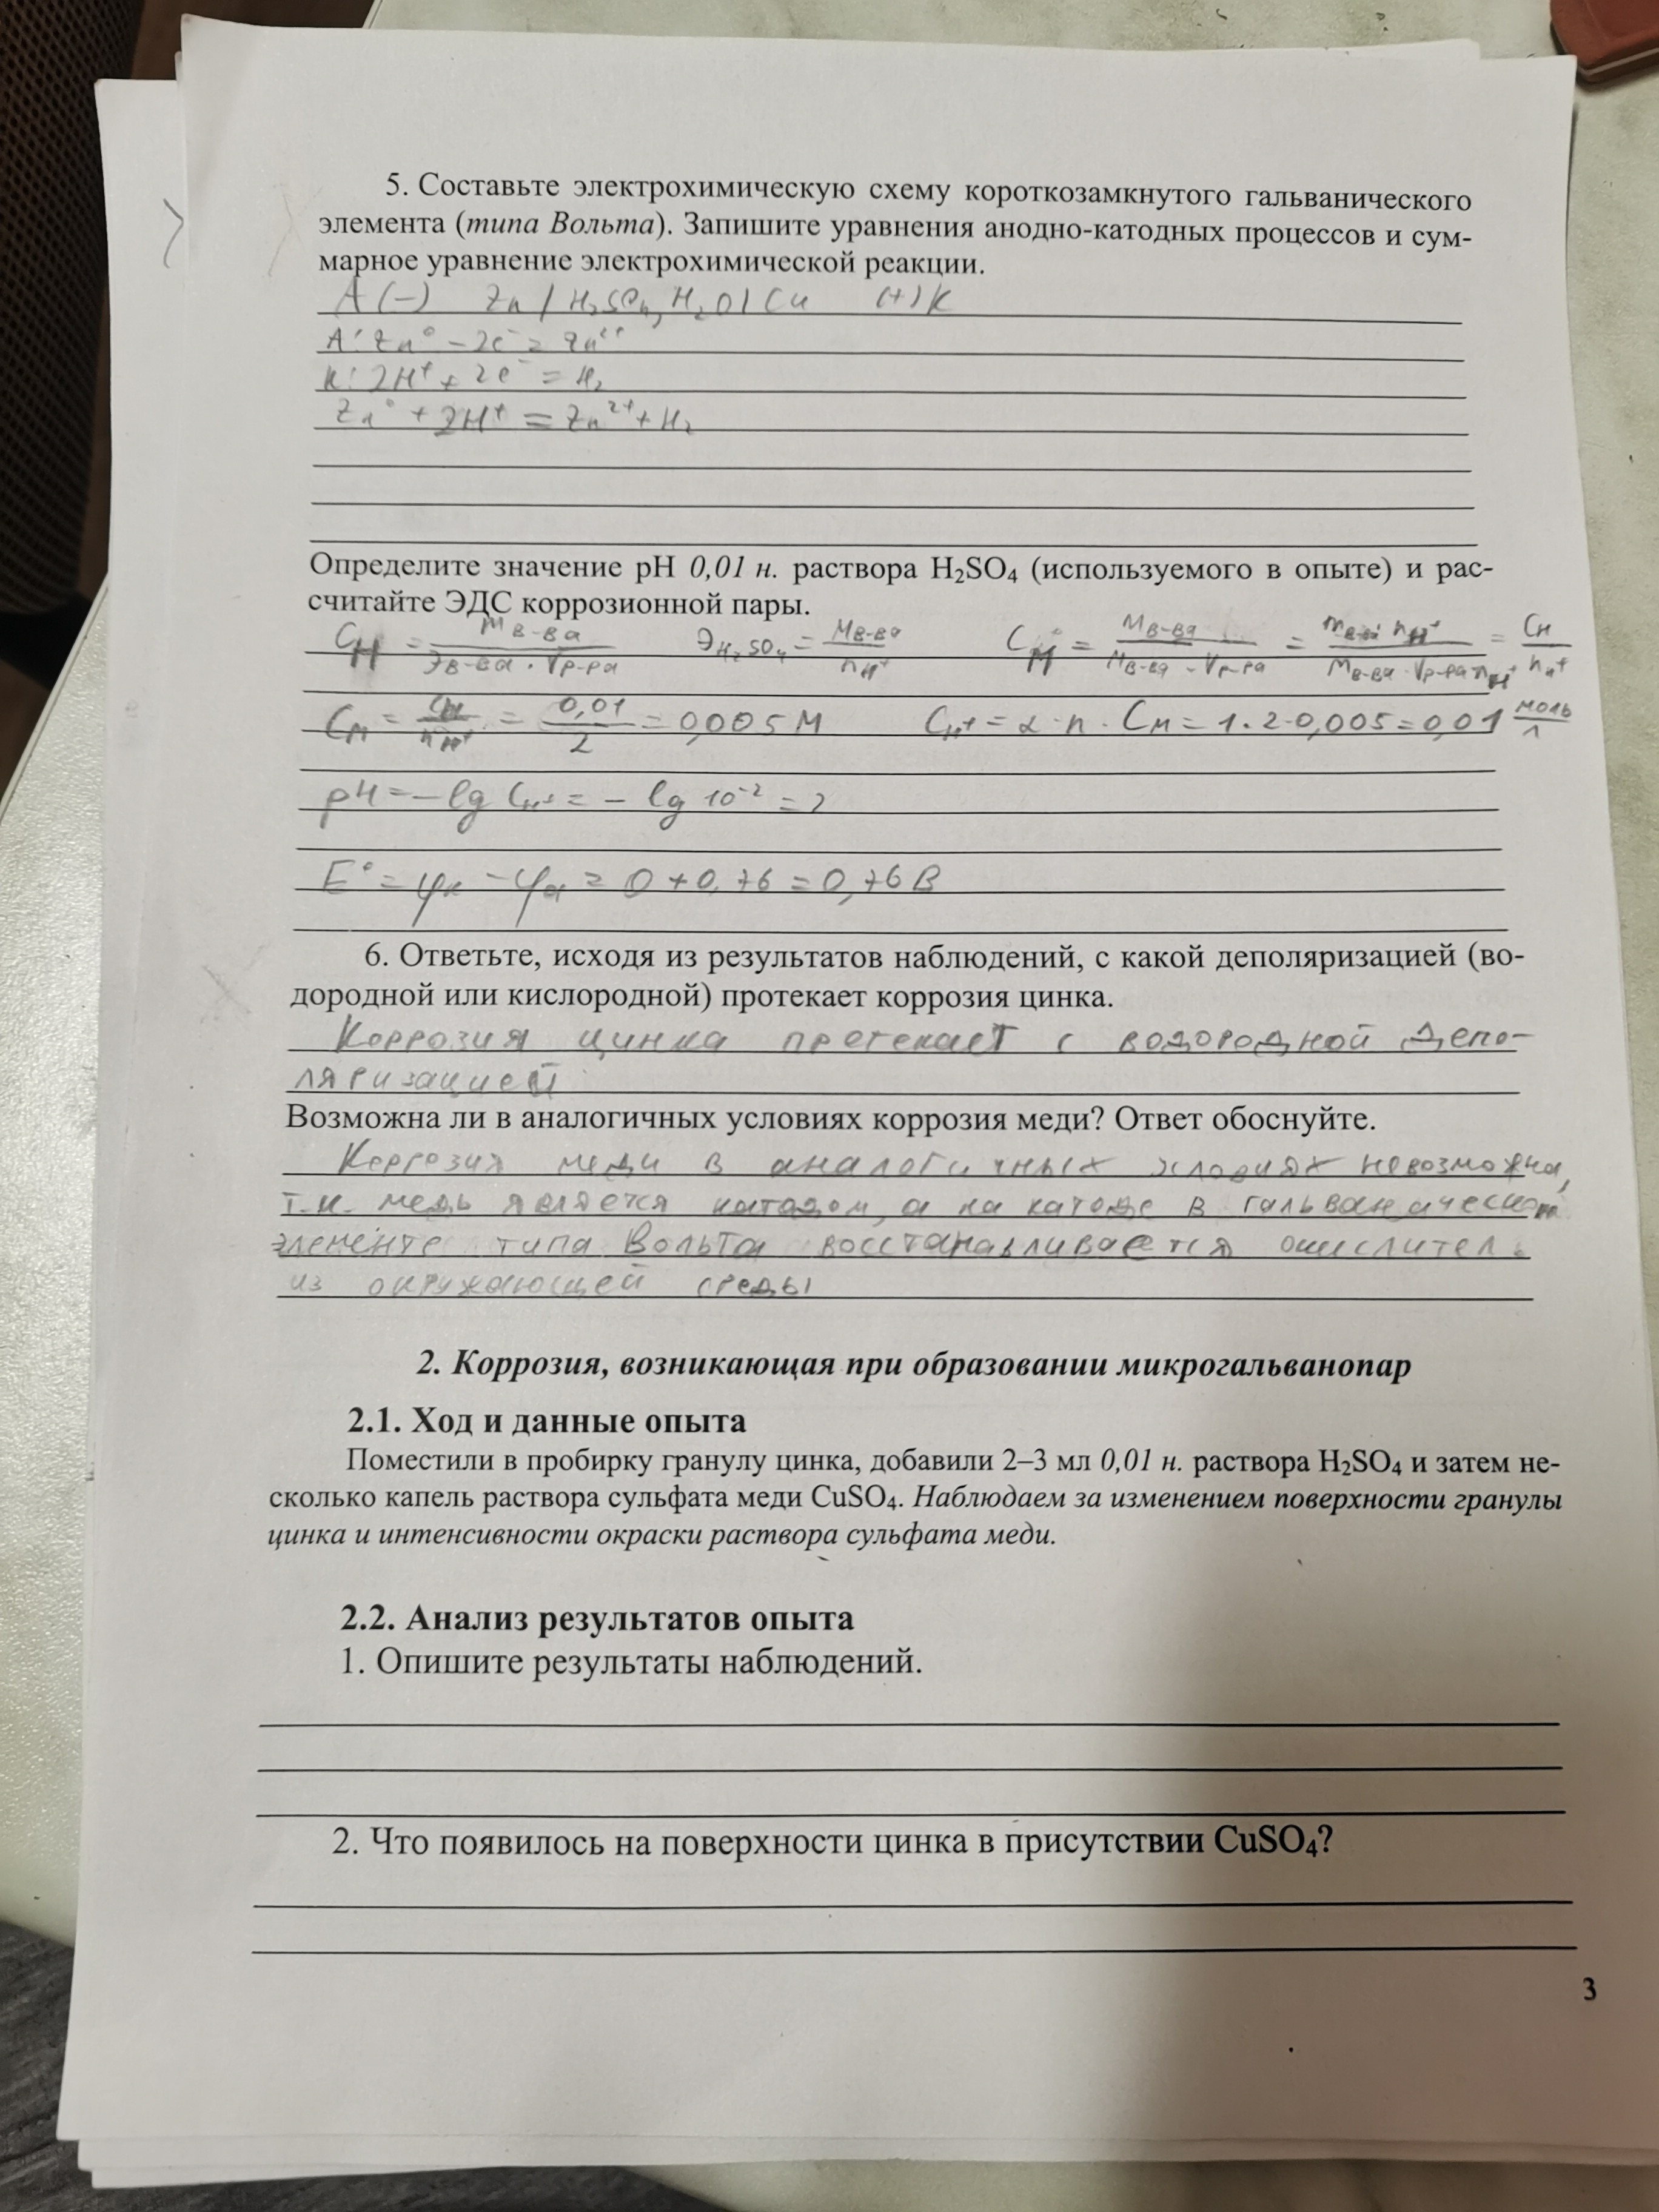 5. Составьте электрохимическую схему короткозамкнутого гальванического
элемента (типа Вольта). Запишите уравнения анодно-катодных процессов и сум-
марное уравнение электрохимической реакции.
A (−) Zn / H₂SO₄, H₂O | Cu (+) K
A: Zn⁰ − 2e⁻ = Zn²⁺
K: 2H⁺ + 2e⁻ = H₂
Zn⁰ + 2H⁺ = Zn²⁺ + H₂
Определите значение pH 0,01 н. раствора H₂SO₄ (используемого в опыте) и рас-
считайте ЭДС коррозионной пары.
Cн = mв-ва / (Эв-ва · Vр-ра) ЭH₂SO₄ = Mв-ва / nH⁺ Cм = mв-ва / (Mв-ва · Vр-ра) = mв-ва · nH⁺ / (Mв-ва · Vр-ра · nH⁺) = Cн / nH⁺
Cм = Cн / nH⁺ = 0,01 / 2 = 0,005 М CH⁺ = α · n · Cм = 1 · 2 · 0,005 = 0,01 моль/л
pH = − lg CH⁺ = − lg 10⁻² = 2
E° = φк − φа = 0 + 0,76 = 0,76 В
6. Ответьте, исходя из результатов наблюдений, с какой деполяризацией (во-
дородной или кислородной) протекает коррозия цинка.
Коррозия цинка протекает с водородной депо-
ляризацией
Возможна ли в аналогичных условиях коррозия меди? Ответ обоснуйте.
Коррозия меди в аналогичных условиях невозможна,
т.к. медь является катодом, а на катоде в гальваническом
элементе типа Вольта восстанавливается окислитель
из окружающей среды
2. Коррозия, возникающая при образовании микрогальванопар
2.1. Ход и данные опыта
Поместили в пробирку гранулу цинка, добавили 2–3 мл 0,01 н. раствора H₂SO₄ и затем не-
сколько капель раствора сульфата меди CuSO₄. Наблюдаем за изменением поверхности гранулы
цинка и интенсивности окраски раствора сульфата меди.
2.2. Анализ результатов опыта
1. Опишите результаты наблюдений.
2. Что появилось на поверхности цинка в присутствии CuSO₄?
3